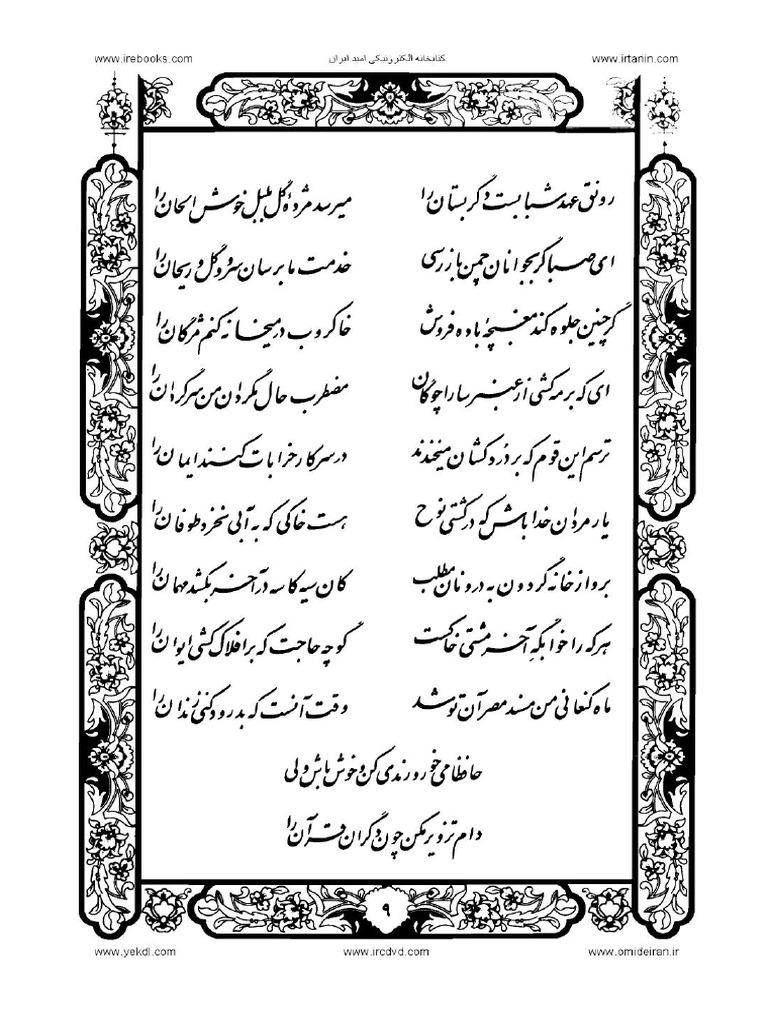 www.irebooks.com کتابخانه الکترونیکی امید ایران www.irtanin.com
رونق عهد شبابست دگر بستان را میرسد مژده گل بلبل خوش الحان را
ای صبا گر بجوانان چمن بازرسی خدمت ما برسان سرو و گل و ریحان را
گر چنین جلوه کند مغبچهٔ باده فروش خاکروب در میخانه کنم مژگان را
ای که بر مه کشی از عنبر سارا چوگان مضطرب حال مگردان من سرگردان را
ترسم این قوم که بر دُردکشان میخندند در سر کار خرابات کنند ایمان را
یار مردان خدا باش که در کشتی نوح هست خاکی که به آبی نخرد طوفان را
برو از خانه گردون به در و نان مطلب کان سیه کاسه در آخر بکشد مهمان را
هر که را خوابگه آخر مشتی خاکست گو چه حاجت که بر افلاک کشی ایوان را
ماه کنعانی من مسند مصر آن تو شد وقت آنست که بدرود کنی زندان را
حافظا می خور و رندی کن و خوش باش ولی
دام تزویر مکن چون دگران قرآن را
۹
www.yekdl.com www.ircdvd.com www.omideiran.ir